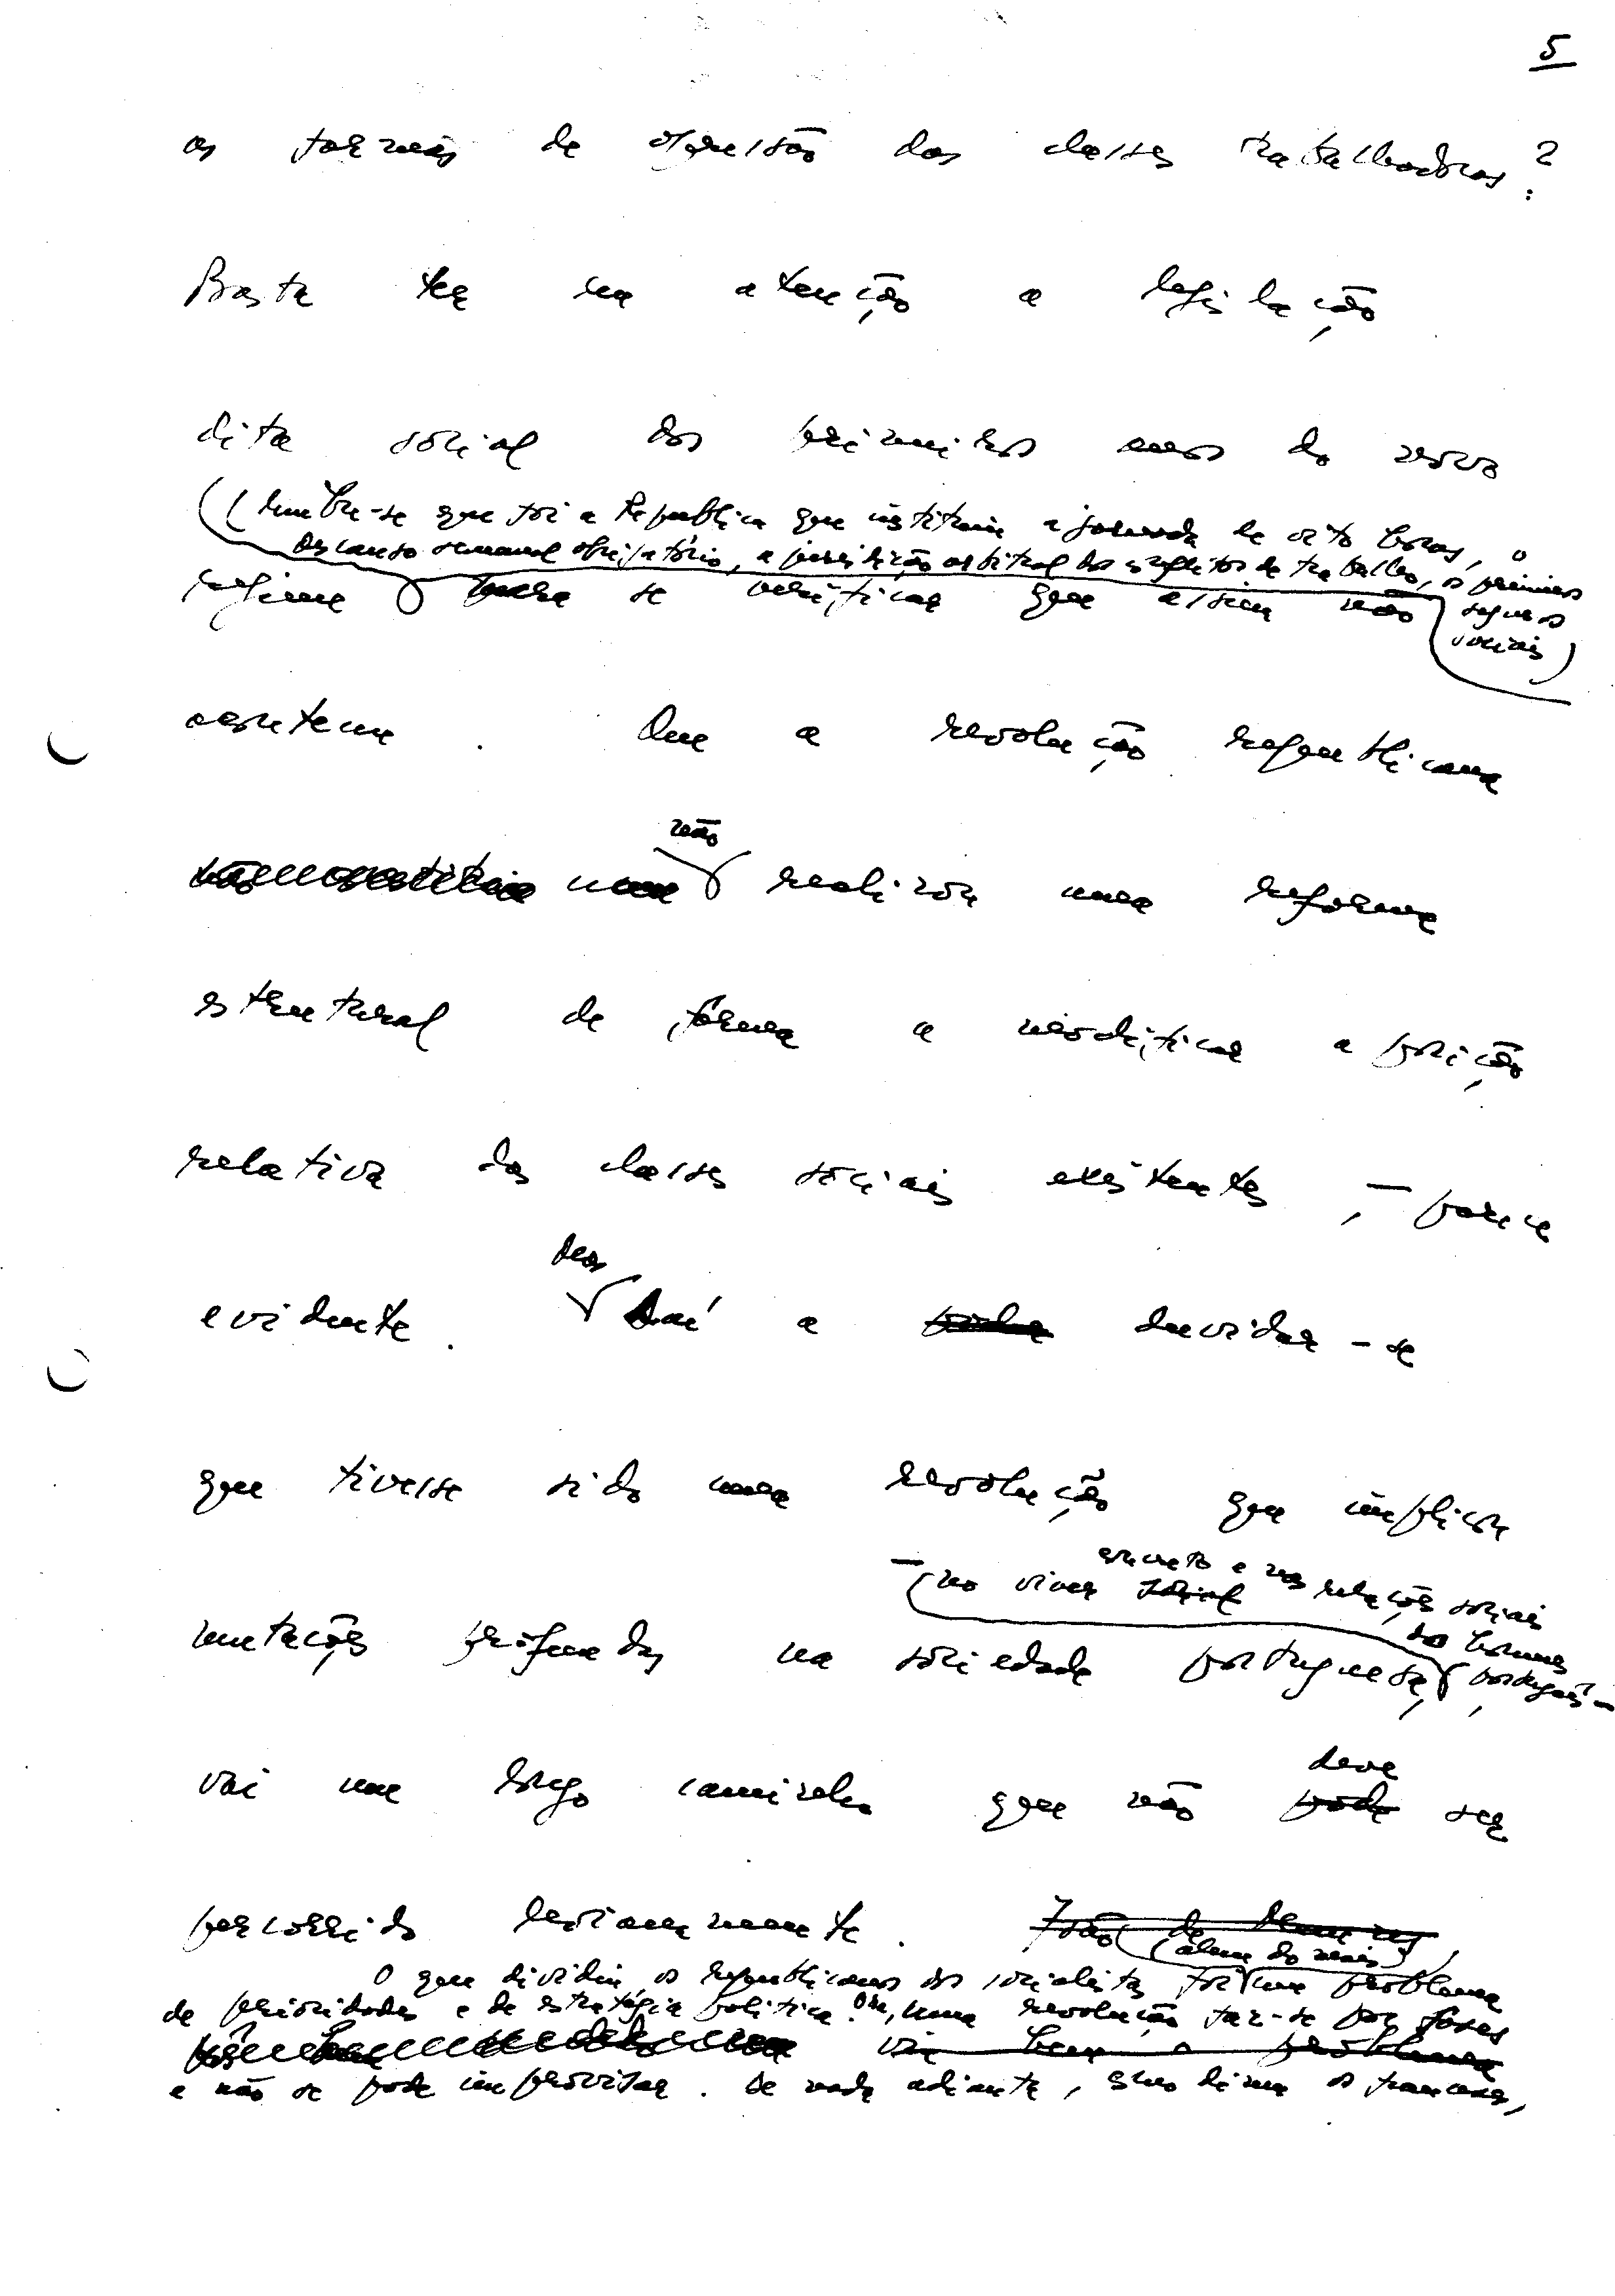 5
as formas de opressão das classes trabalhadoras?
Basta ter na atenção a legislação
dita social dos primeiros anos do novo
(lembre-se que foi a República que instituiu a jornada de oito horas, o
descanso semanal obrigatório, a jurisdição arbitral dos conflitos de trabalho, os primeiros
seguros
sociais)
regime para se verificar que assim não
aconteceu. Que a revolução republicana
não
realizou uma reforma
estrutural de forma a modificar a posição
relativa das classes sociais existentes, — parece
evidente. Mas
daí a duvidar-se
que tivesse sido uma revolução que implicou
— no viver social concreto e nas relações sociais
dos homens
portugueses —
mutações profundas na sociedade portuguesa,
vai um longo caminho que não pode deve ser
percorrido levianamente.
(além do mais)
O que dividiu os republicanos dos socialistas foi um problema
de prioridades e de estratégia política. Ora, uma revolução faz-se por fases
viu bem o problema
e não se pode improvisar. De nada adianta, como dizem os franceses,